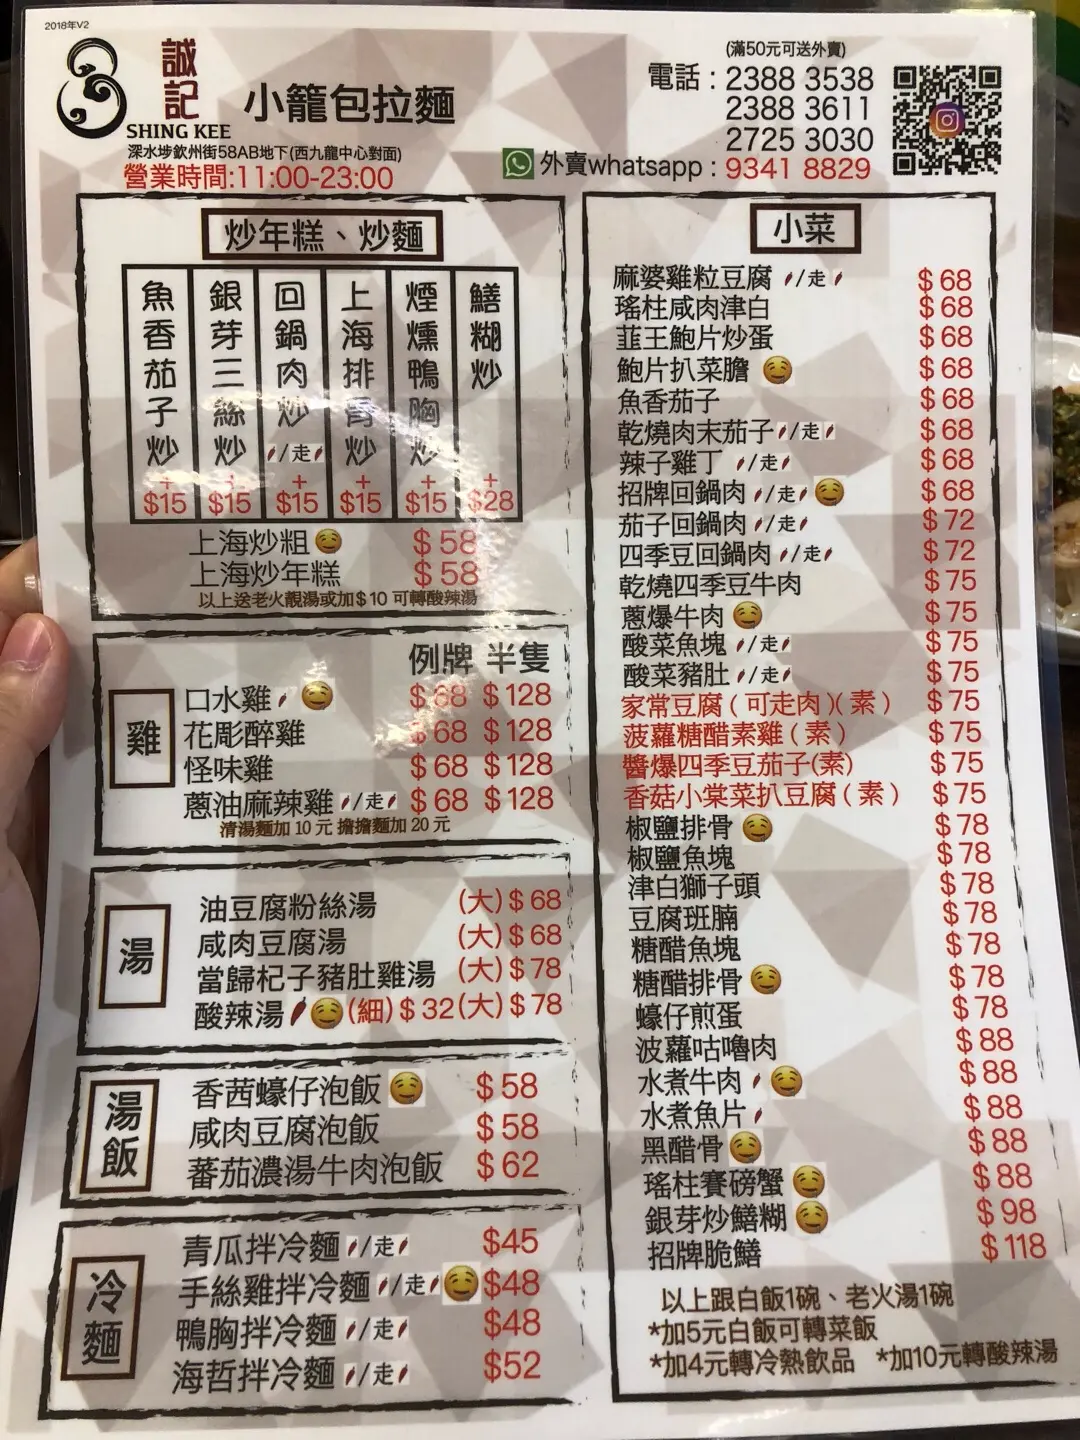 2018年V2
誠記
SHING KEE
小籠包拉麵
深水埗欽州街58AB地下(西九龍中心對面)
營業時間:11:00-23:00
(滿50元可送外賣)
電話 : 2388 3538
2388 3611
2725 3030
外賣whatsapp : 9341 8829
炒年糕、炒麵
魚香茄子炒 +$15
銀芽三絲炒 +$15
回鍋肉炒 /走 +$15
上海排骨炒 +$15
煙燻鴨胸炒 +$15
鱔糊炒 +$28
上海炒粗 $58
上海炒年糕 $58
以上送老火靚湯或加$10 可轉酸辣湯
雞
例牌 半隻
口水雞 $68 $128
花彫醉雞 $68 $128
怪味雞 $68 $128
蔥油麻辣雞 /走 $68 $128
清湯麵加 10 元 擔擔麵加 20 元
湯
油豆腐粉絲湯 (大) $68
咸肉豆腐湯 (大) $68
當歸杞子豬肚雞湯 (大) $78
酸辣湯 (細) $32 (大) $78
湯飯
香茜蠔仔泡飯 $58
咸肉豆腐泡飯 $58
蕃茄濃湯牛肉泡飯 $62
冷麵
青瓜拌冷麵 /走 $45
手絲雞拌冷麵 /走 $48
鴨胸拌冷麵 /走 $48
海哲拌冷麵 /走 $52
小菜
麻婆雞粒豆腐 /走 $68
瑤柱咸肉津白 $68
韮王鮑片炒蛋 $68
鮑片扒菜膽 $68
魚香茄子 $68
乾燒肉末茄子 /走 $68
辣子雞丁 /走 $68
招牌回鍋肉 /走 $68
茄子回鍋肉 /走 $72
四季豆回鍋肉 /走 $72
乾燒四季豆牛肉 $75
蔥爆牛肉 $75
酸菜魚塊 /走 $75
酸菜豬肚 /走 $75
家常豆腐 ( 可走肉 )( 素 ) $75
菠蘿糖醋素雞 ( 素 ) $75
醬爆四季豆茄子(素) $75
香菇小棠菜扒豆腐 ( 素 ) $75
椒鹽排骨 $78
椒鹽魚塊 $78
津白獅子頭 $78
豆腐班腩 $78
糖醋魚塊 $78
糖醋排骨 $78
蠔仔煎蛋 $78
波蘿咕嚕肉 $88
水煮牛肉 $88
水煮魚片 $88
黑醋骨 $88
瑤柱賽磅蟹 $88
銀芽炒鱔糊 $98
招牌脆鱔 $118
以上跟白飯1碗、老火湯1碗
*加5元白飯可轉菜飯
*加4元轉冷熱飲品 *加10元轉酸辣湯